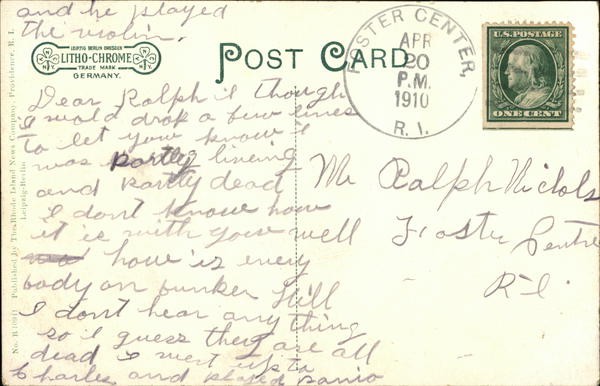 and he played
the violin.
LEIPZIG BERLIN DRESDEN
LITHO-CHROME
TRADE MARK
N.Y.
N.Y.
GERMANY.
POST CARD
FOSTER CENTER,
APR
20
P.M.
1910
R. I.
U.S. POSTAGE
ONE CENT
Dear Ralph i though
I wold drok a few lines
to let you know I
was partly liveing
and partly dead
I dont know how
it is with you well
how is every
body on bunker Hill
I dont hear any thing
so I guess they are all
dead I went up to
Charles and played banio
Mr Ralph Nichols
Foster Centre
R-I-
No. B 10911 Published by The Rhode Island News Company, Providence, R. I.
Leipzig-Berlin